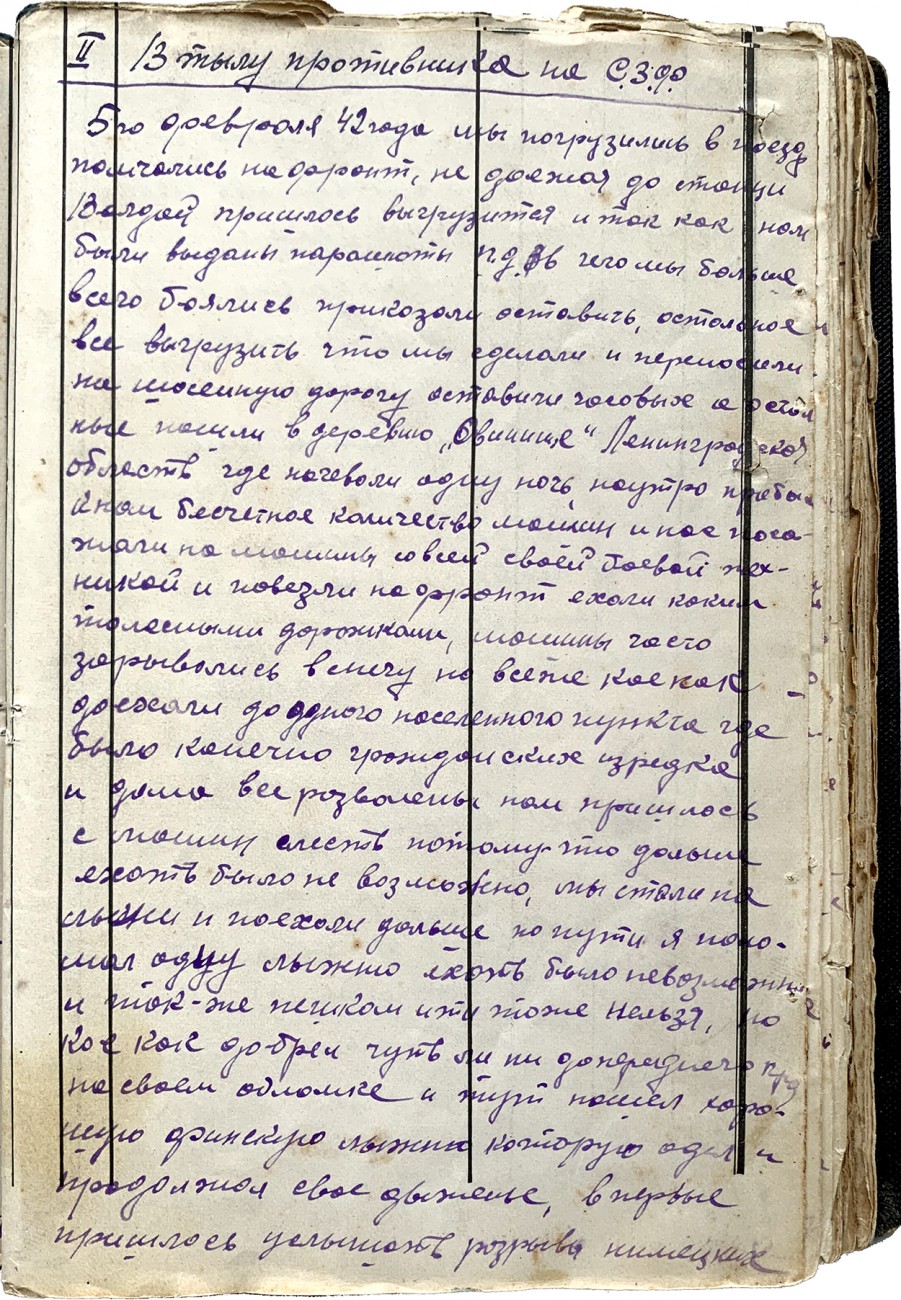 II В тылу противника на С.З.Ф.
5го февраля 42 года мы погрузились в поезд
помчались на фронт, не доезжая до станци
Валдай пришлось выгрузится и так как нам
были выданы парашюты ПД 6 в чего мы больше
всего боялись приказали оставить, остальное
все выгрузить что мы сделали и переносили
на шосейную дорогу оставичи часовых а остал
ные пошли в деревню „Овинище" Ленинградской
област где ночевали одну ночь, наутро прибы
к нам бесчетное количество машин и нас поса-
жали на машины со всей своей боевой тех-
никой и повезли на фронт ехали каким
то лесными дорожками, машины часто
зарывались в снегу но всеже кое как
доехали до одного населенного пункта где
было конечно гражданских изредка
и дома все розвалены нам пришлось
с машин слесть потому-что дальше
ехать было не возможно, мы стали на
лыжи и поехали дальше по пути я поло-
мал одну лыжню ехать было невозможн
и так-же пешком ити тоже нельзя, но
кое как добрел чуть ли ни допереднего
на своем обломке и тут нашел харо-
шую финскую лыжню которую одел и
продолжал свое движенье, впервые
пришлось услышать розрывы нимецких